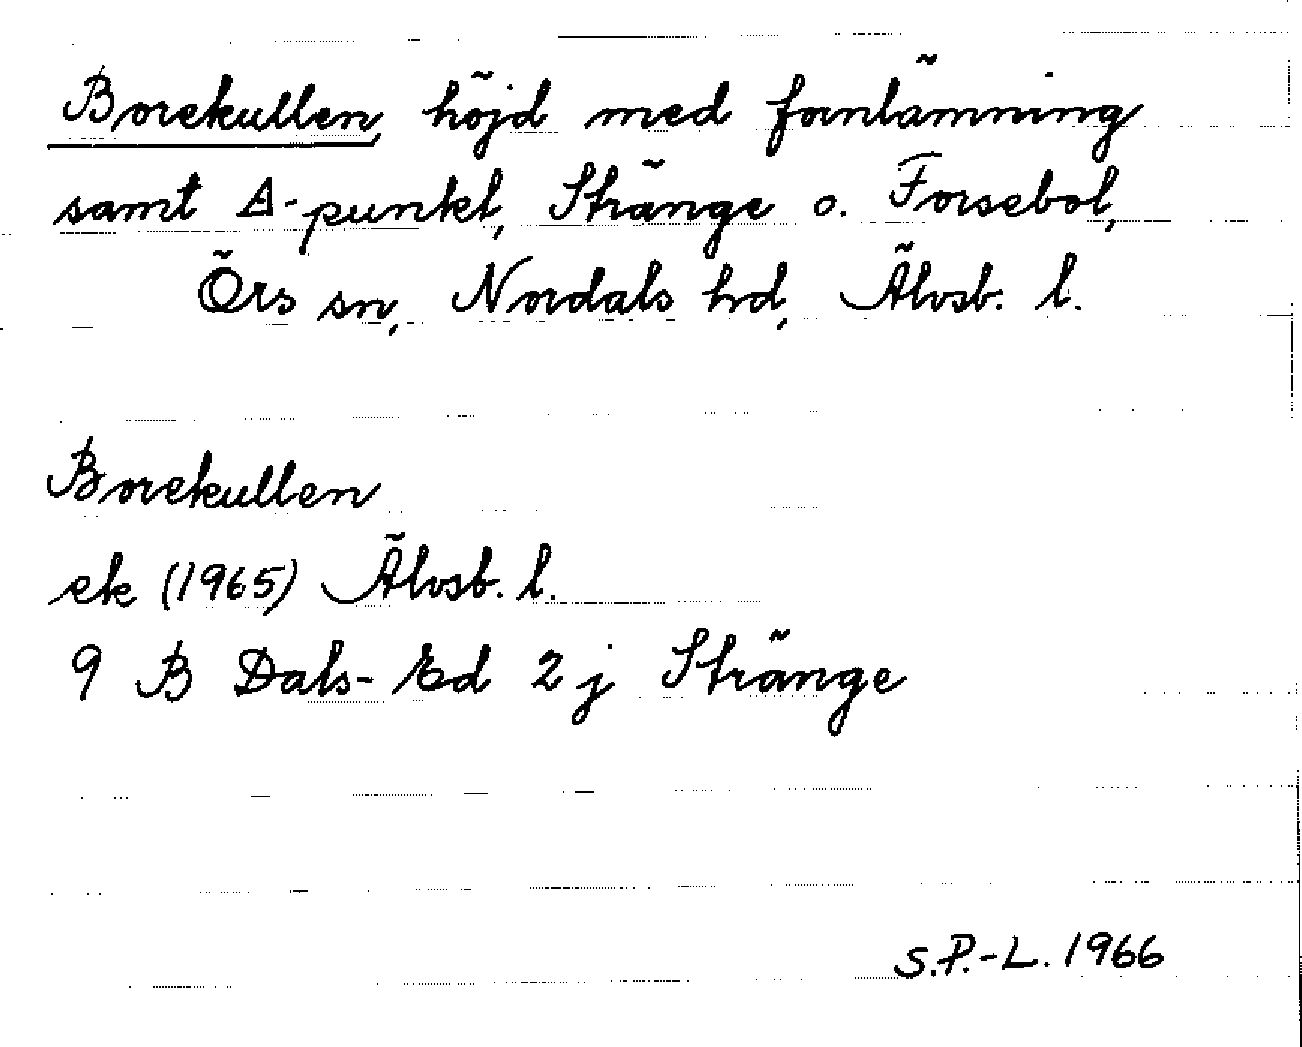 Borekullen, höjd med fornlämning
samt △-punkt, Stränge o. Forsebol,
Örs sn, Nordals hd, Älvsb. l.
Borekullen
ek (1965) Älvsb. l.
9 B Dals-Ed 2 j Stränge
S.P.-L. 1966